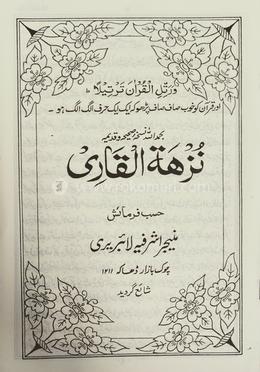 وَرَتِّلِ الْقُرْاٰنَ تَرْتِيْلًا
اور قرآن کو خوب صاف صاف پڑھو کہ ایک ایک حرف الگ الگ ہو ۔
بحمد اللہ نسخہ صحیحہ و قدیمہ
نُزهة القاری
حسب فرمائش
منیجر اشرفیہ لائبریری
چوک بازار ڈھاکہ ۱۲۱۱
شائع گردید